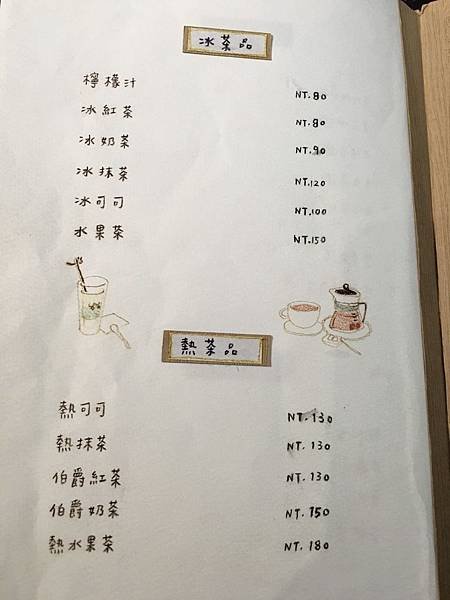 冰茶品
檸檬汁 NT.80
冰紅茶 NT.80
冰奶茶 NT.90
冰抹茶 NT.120
冰可可 NT.100
水果茶 NT.150
熱茶品
熱可可 NT.130
熱抹茶 NT.130
伯爵紅茶 NT.130
伯爵奶茶 NT.150
熱水果茶 NT.180